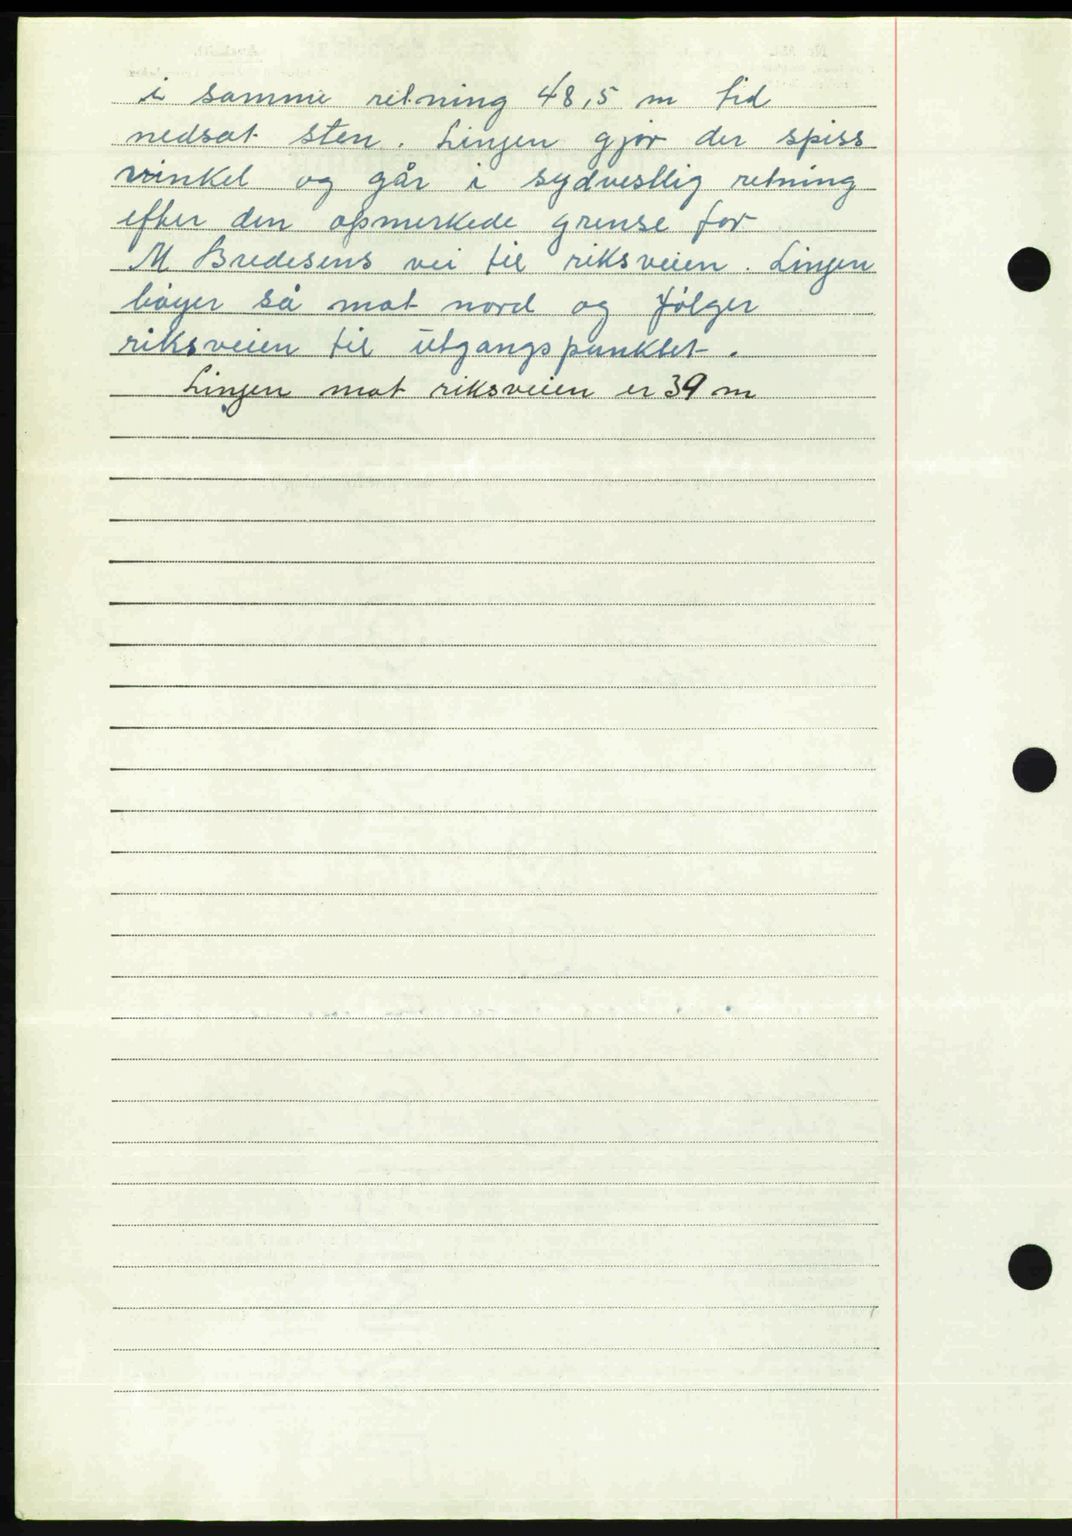 i samme retning 48,5 m til
nedsat sten. Linjen gjør der spiss
vinkel og går i sydvestlig retning
efter den opmerkede grense for
M Bredesens vei til riksveien. Linjen
bøyer så mot nord og følger
riksveien til utgangspunktet.
Linjen mot riksveien er 39 m